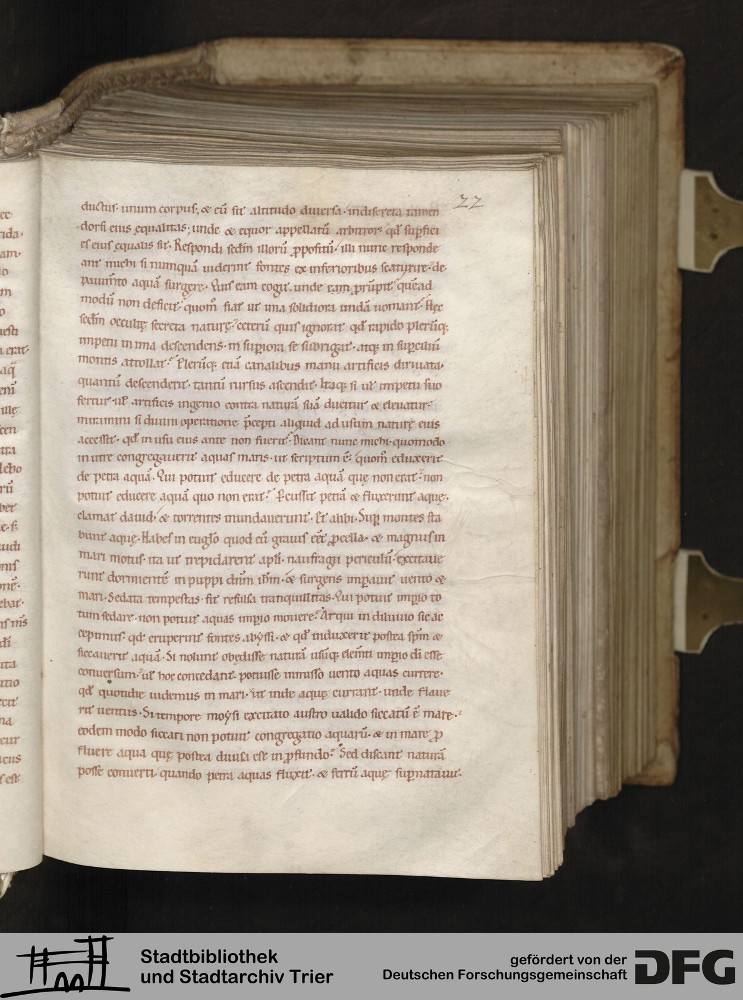 22
ductus. unum corpus; & cū sit altitudo diuersa. indiscreta tamen
dorsi eius equalitas; unde & equor appellatū arbitror. qd supfici
es eius equalis sit. Respondi scdm illorū ppositū. illi nunc responde
ant michi si nunquā uiderint fontes ex inferioribus scaturire. de
pauim̄to aquā surgere. Quis eam cogit. unde tam prūpit. que ad
modū non deficit. quom̄ fiat ut ima solidiora undā uomant. Hęc
scdm occultę secreta naturę. ceterū quis ignorat qd rapido plerūq;
impetu in ima descendens. in supiora se subrigat. atq; in supciliū
montis attollat. Plerūq; etiā canalibus manu artificis diriuata.
quantū descenderit. tantū rursus ascendit. Itaq; si ul' impetu suo
fertur. ul' artificis ingenio contra naturā suā ducitur & eleuatur.
miramini si diuinę operatione pcepti aliquid ad usum naturę eius
accessit. qd in usu eius ante non fuerit. Dicant nunc michi. quomodo
in utre congregauerit aquas maris. ut scriptum ē. quom̄ eduxerit
de petra aquā. Qui potuit educere de petra aquā que non erat. non
potuit educere aquā quo non erat. Pcussit petrā & fluxerunt aque.
clamat dauid. & torrentes inundauerunt. Et alibi. Sup montes sta
bunt aque. Habes in euglo quod cū grauis eēt pcella. & magnus in
mari motus. ita ut trepidarent apli. naufragii periculū. excitaue
runt dormientē in puppi dnm ihm. & surgens impauit uento &
mari. Sedata tempestas. fit refusa tranquillitas. Qui potuit impio to
tum sedare. non potuit aquas impio mouere. Atqui in diluuio sic ac
cepimus. qd eruperint fontes abyssi. & qd induxerit postea spm &
siccauerit aquā. Si nolunt obedisse naturā usuq; elemti impio di esse
conuersum. ul' hoc concedant. potuisse inmisso uento aquas currere.
qd quotidie uidemus in mari. ut inde aque currant. unde flaue
rit uentus. Si tempore moysi excitato austro ualido siccatū ē mare.
eodem modo siccari non potuit congregatio aquarū. & in mare p
fluere aqua que postea diuisa est in pfundo. Sed discant naturā
posse conuerti. quando petra aquas fluxit. & ferrū aque supnatauit.
Stadtbibliothek
und Stadtarchiv Trier
gefördert von der
Deutschen Forschungsgemeinschaft
DFG